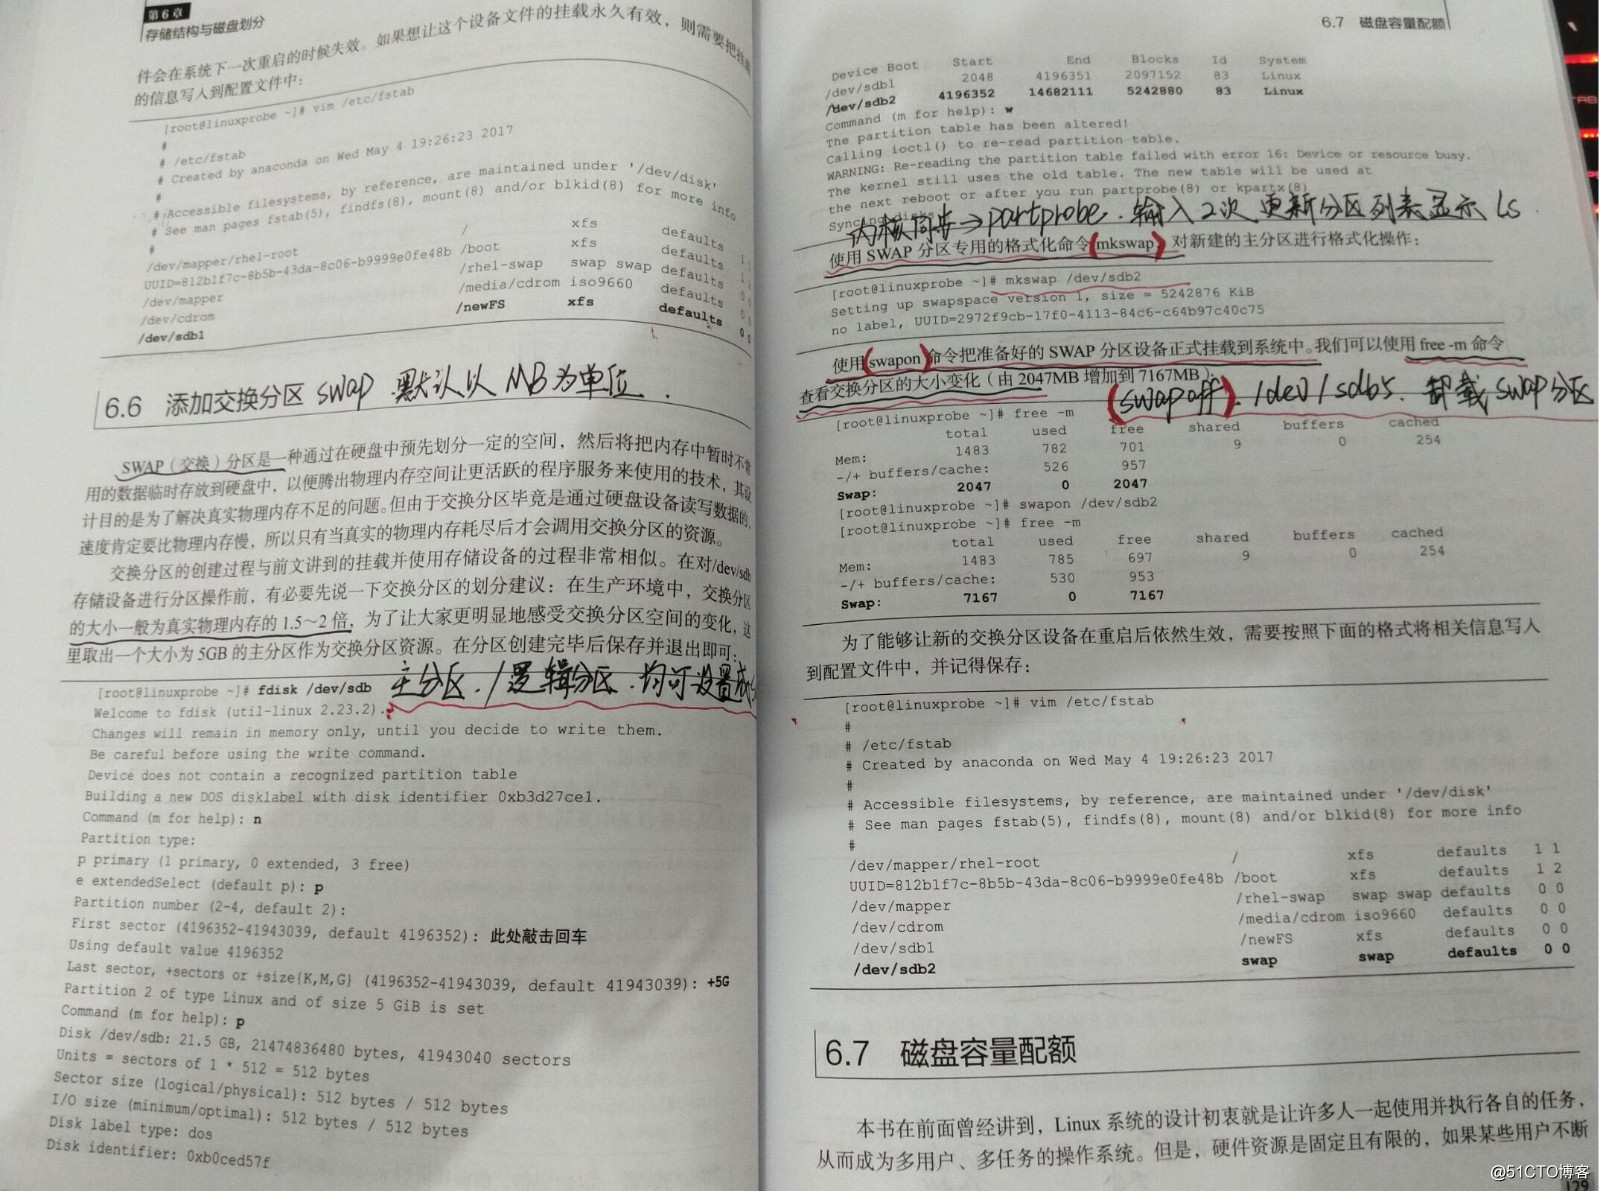 第6章
存储结构与磁盘划分
件会在系统下一次重启的时候失效。如果想让这个设备文件的挂载永久有效，则需要把挂载
的信息写入到配置文件中：
[root@linuxprobe ~]# vim /etc/fstab
#
# /etc/fstab
# Created by anaconda on Wed May 4 19:26:23 2017
#
# Accessible filesystems, by reference, are maintained under '/dev/disk'
# See man pages fstab(5), findfs(8), mount(8) and/or blkid(8) for more info
#
/dev/mapper/rhel-root / xfs defaults 1
UUID=812b1f7c-8b5b-43da-8c06-b9999e0fe48b /boot xfs defaults 1
/dev/mapper /rhel-swap swap swap defaults 0
/dev/cdrom /media/cdrom iso9660 defaults 0
/dev/sdb1 /newFS xfs defaults 0
6.6 添加交换分区 swap 默认以MB为单位.
SWAP（交换）分区是一种通过在硬盘中预先划分一定的空间，然后将把内存中暂时不常
用的数据临时存放到硬盘中，以便腾出物理内存空间让更活跃的程序服务来使用的技术，其设
计目的是为了解决真实物理内存不足的问题。但由于交换分区毕竟是通过硬盘设备读写数据的，
速度肯定要比物理内存慢，所以只有当真实的物理内存耗尽后才会调用交换分区的资源。
交换分区的创建过程与前文讲到的挂载并使用存储设备的过程非常相似。在对/dev/sdb
存储设备进行分区操作前，有必要先说一下交换分区的划分建议：在生产环境中，交换分区
的大小一般为真实物理内存的1.5～2倍，为了让大家更明显地感受交换分区空间的变化，这
里取出一个大小为5GB的主分区作为交换分区资源。在分区创建完毕后保存并退出即可：
[root@linuxprobe ~]# fdisk /dev/sdb 主分区./逻辑分区.均可设置成
Welcome to fdisk (util-linux 2.23.2).
Changes will remain in memory only, until you decide to write them.
Be careful before using the write command.
Device does not contain a recognized partition table
Building a new DOS disklabel with disk identifier 0xb3d27ce1.
Command (m for help): n
Partition type:
p primary (1 primary, 0 extended, 3 free)
e extendedSelect (default p): p
Partition number (2-4, default 2):
First sector (4196352-41943039, default 4196352): 此处敲击回车
Using default value 4196352
Last sector, +sectors or +size{K,M,G} (4196352-41943039, default 41943039): +5G
Partition 2 of type Linux and of size 5 GiB is set
Command (m for help): p
Disk /dev/sdb: 21.5 GB, 21474836480 bytes, 41943040 sectors
Units = sectors of 1 * 512 = 512 bytes
Sector size (logical/physical): 512 bytes / 512 bytes
I/O size (minimum/optimal): 512 bytes / 512 bytes
Disk label type: dos
Disk identifier: 0xb0ced57f
6.7 磁盘容量配额
Device Boot Start End Blocks Id System
/dev/sdb1 2048 4196351 2097152 83 Linux
/dev/sdb2 4196352 14682111 5242880 83 Linux
Command (m for help): w
The partition table has been altered!
Calling ioctl() to re-read partition table.
WARNING: Re-reading the partition table failed with error 16: Device or resource busy.
The kernel still uses the old table. The new table will be used at
the next reboot or after you run partprobe(8) or kpartx(8)
Syncing disks.
内核同步→partprobe. 输入2次 更新分区列表显示 ls
使用SWAP分区专用的格式化命令(mkswap)，对新建的主分区进行格式化操作：
[root@linuxprobe ~]# mkswap /dev/sdb2
Setting up swapspace version 1, size = 5242876 KiB
no label, UUID=2972f9cb-17f0-4113-84c6-c64b97c40c75
使用(swapon)命令把准备好的SWAP分区设备正式挂载到系统中。我们可以使用free -m命令
查看交换分区的大小变化（由2047MB增加到7167MB）：
(swapoff). /dev/sdb5. 卸载 swap分区
[root@linuxprobe ~]# free -m
total used free shared buffers cached
Mem: 1483 782 701 9 0 254
-/+ buffers/cache: 526 957
Swap: 2047 0 2047
[root@linuxprobe ~]# swapon /dev/sdb2
[root@linuxprobe ~]# free -m
total used free shared buffers cached
Mem: 1483 785 697 9 0 254
-/+ buffers/cache: 530 953
Swap: 7167 0 7167
为了能够让新的交换分区设备在重启后依然生效，需要按照下面的格式将相关信息写入
到配置文件中，并记得保存：
[root@linuxprobe ~]# vim /etc/fstab
#
# /etc/fstab
# Created by anaconda on Wed May 4 19:26:23 2017
#
# Accessible filesystems, by reference, are maintained under '/dev/disk'
# See man pages fstab(5), findfs(8), mount(8) and/or blkid(8) for more info
#
/dev/mapper/rhel-root / xfs defaults 1 1
UUID=812b1f7c-8b5b-43da-8c06-b9999e0fe48b /boot xfs defaults 1 2
/dev/mapper /rhel-swap swap swap defaults 0 0
/dev/cdrom /media/cdrom iso9660 defaults 0 0
/dev/sdb1 /newFS xfs defaults 0 0
/dev/sdb2 swap swap defaults 0 0
6.7 磁盘容量配额
本书在前面曾经讲到，Linux系统的设计初衷就是让许多人一起使用并执行各自的任务，
从而成为多用户、多任务的操作系统。但是，硬件资源是固定且有限的，如果某些用户不断
129
@51CTO博客